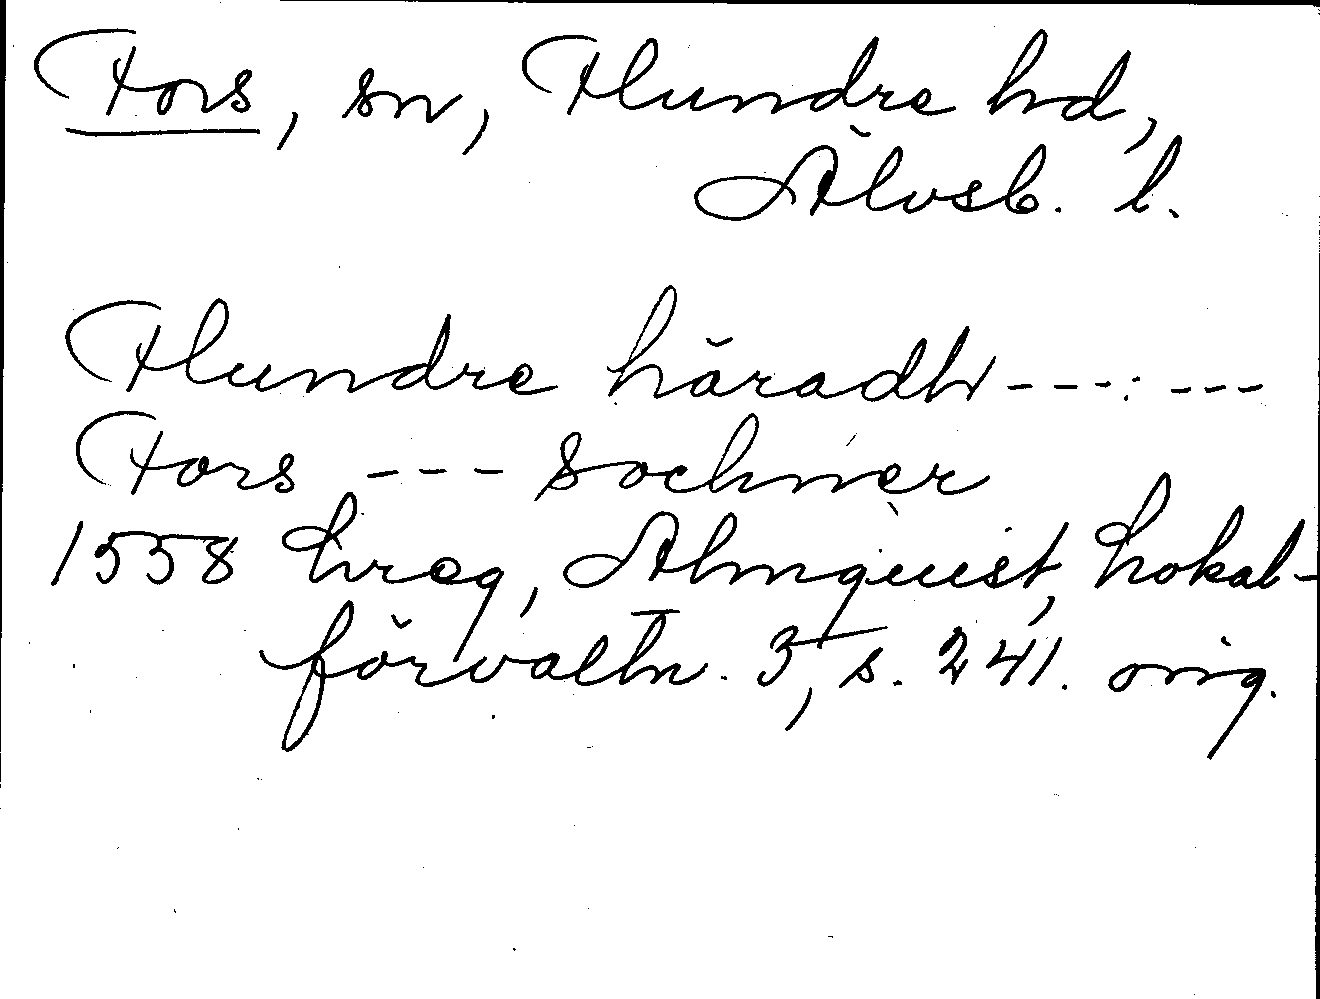 Fors, sn, Flundre hd,
Älvsb. l.
Flundre häradh --- : ---
Fors --- sochner
1558 Lreg, Almquist, Lokal-
förvaltn. 3, s. 241. orig.